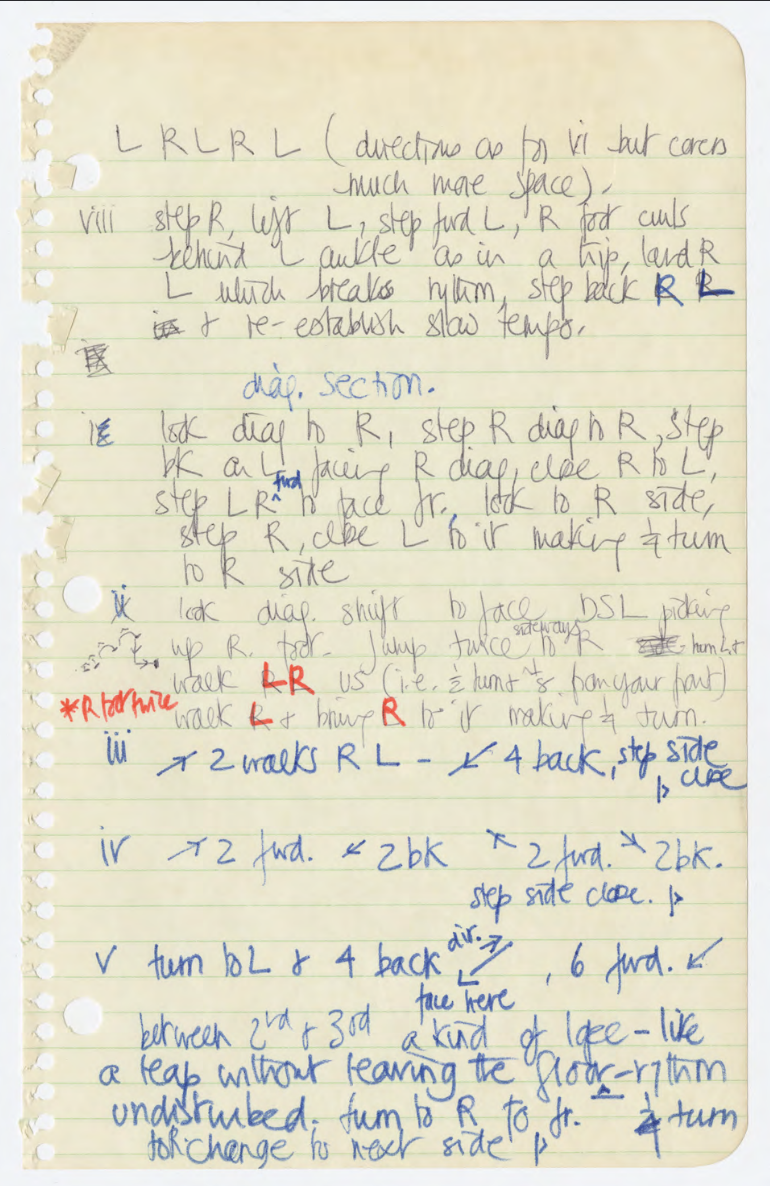 L R L R L ( directions as for vi but covers
much more space).
viii step R, left L, step fwd L, R foot curls
behind L ankle as in a trip, land R
L which breaks rythm, step back R L
& re-establish slow tempo.
diag. section.
look diag to R, step R diag to R, step
bk on L facing R diag, close R to L,
fwd
step L R ^ to face fr., look to R side,
step R, close L to it making ¼ turn
to R side
ii look diag. shift to face DSL picking
sideways
up R. foot. Jump twice to R turn L &
walk L R US (i.e. ½ turn & from your front)
* R foot twice walk L & bring R to it making ¼ turn.
iii ↗ 2 walks R L - ↙ 4 back, step side
close
iv ↗ 2 fwd. ↙ 2 bk ↖ 2 fwd. ↘ 2 bk.
step side close.
v turn to L & 4 back dir. ↗ ↙ , 6 fwd. ↙
face here
between 2nd & 3rd a kind of lope-like
a leap without leaving the floor-rythm
undisturbed. turn to R to fr. ¼ turn
to R. change to next side